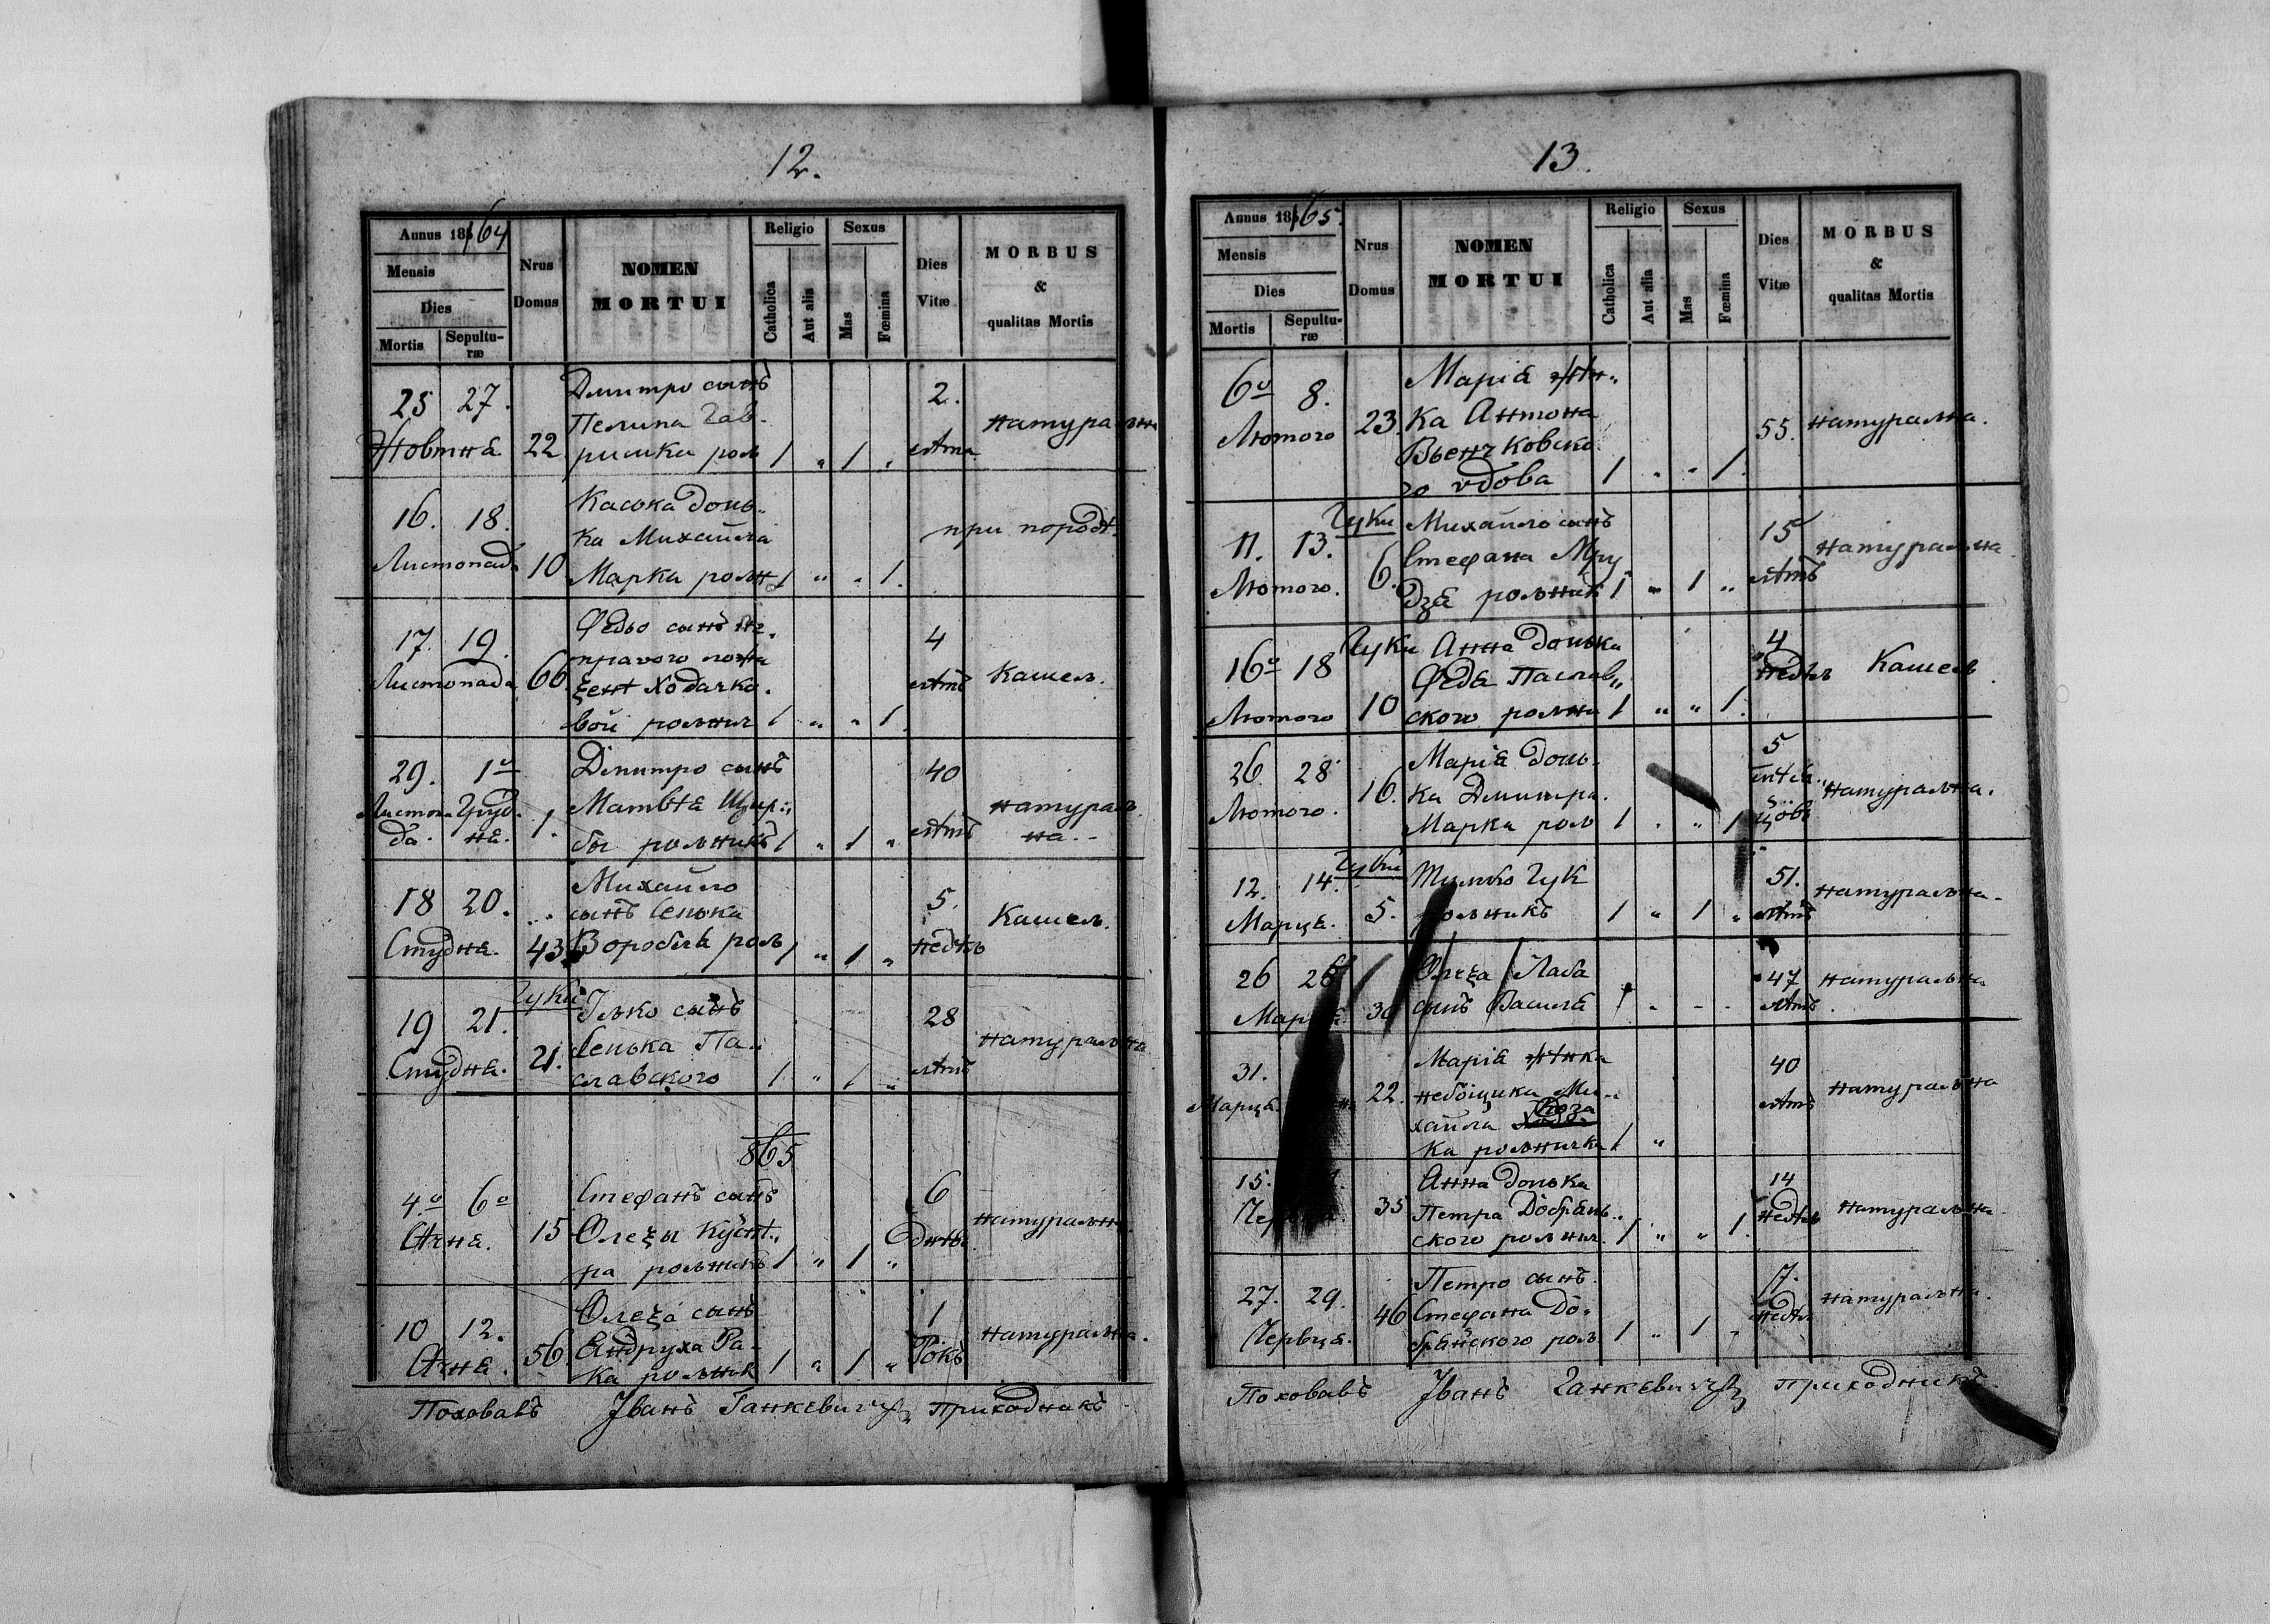 12.
Annus 1864
Mensis
Dies
Mortis
Sepulturæ
Nrus Domus
NOMEN MORTUI
Religio
Catholica
Aut alia
Sexus
Mas
Fœmina
Dies Vitæ
MORBUS & qualitas Mortis
25 27. Жовтня. 22
Дмитро сынъ
Пелипа Гав-
рилка роль
1 „ 1 „
2. лѣта
натуральна
16. 18. Листопада 10
Каська донь-
ка Михайла
Марка рольн
1 „ „ 1.
при породѣ.
17. 19. Листопада 66
Федьо сынъ не-
правого ложа
Ходачко-
вой рольнич
1 „ „ 1
4 лѣтъ
Кашель.
29. Листопада. 1о Грудня. 1.
Дмитро сынъ
Матвѣя
бы рольникъ
1 „ 1 „
40 лѣтъ
натураль-
на.
18 20. Студня. 43
Михайло
сынъ Сенька
Воробля роль
1 „ 1 „
5. недѣль
Кашель.
19 21. Студня. Гуки 21.
Ілько сынъ
Сенька Па-
славского
1 „ 1 „
28 лѣтъ
натуральна
865
4.о 6о Сѣчня. 15
Стефанъ сынъ
Олексы
ра рольникъ
1 „ 1 „
6 Днѣвъ
натуральна.
10 12. Сѣчня. 56
Олекса сынъ
Андруха Ра-
ка рольник
1 „ 1 „
1 Рокъ
натуральна.
Поховавъ Іванъ Ганкевичъ приходникъ
13.
Annus 1865.
Mensis
Dies
Mortis
Sepulturæ
Nrus Domus
NOMEN MORTUI
Religio
Catholica
Aut alia
Sexus
Mas
Fœmina
Dies Vitæ
MORBUS & qualitas Mortis
6о 8. Лютого 23.
Марія жѣн-
ка Антона
Вьенчковско-
го вдова
1 „ „ 1.
55.
натуральна.
11. 13. Лютого. Гуки 6.
Михайло сынъ
Стефана Мру
дзя рольник
1 „ 1 „
15 лѣтъ
натуральна
16о 18 Лютого Гуки 10
Анна донька
Федя Паслав-
ского рольни
1 „ „ 1.
4 недѣль
Кашель.
26. 28. Лютого. 16.
Марія донь-
ка Дмитра
Марка роль
1 „ „ 1
5
натуральна.
12. 14. Марця. Гуки 5.
Тимко Гук
рольникъ
1 „ 1 „
51. лѣтъ
натуральна.
26 28 Марця. 30
Олекса Лаба
сынъ Василя
1 „ - -
47 лѣтъ
натуральна.
31. Марця. 22.
Марія жѣнка
небощика Ми-
хайла
ка рольничка
1 „
40 лѣтъ
натуральна
15. 35
Анна донька
Петра Добрянь-
ского рольнич.
1 „ „ 1.
14 недѣль
натуральна.
27. 29. Червця. 46
Петро сынъ
Стефана До-
брянского роль
1 „ 1 „
7. недѣль
натуральна.
Поховавъ Іванъ Ганкевичъ приходникъ.